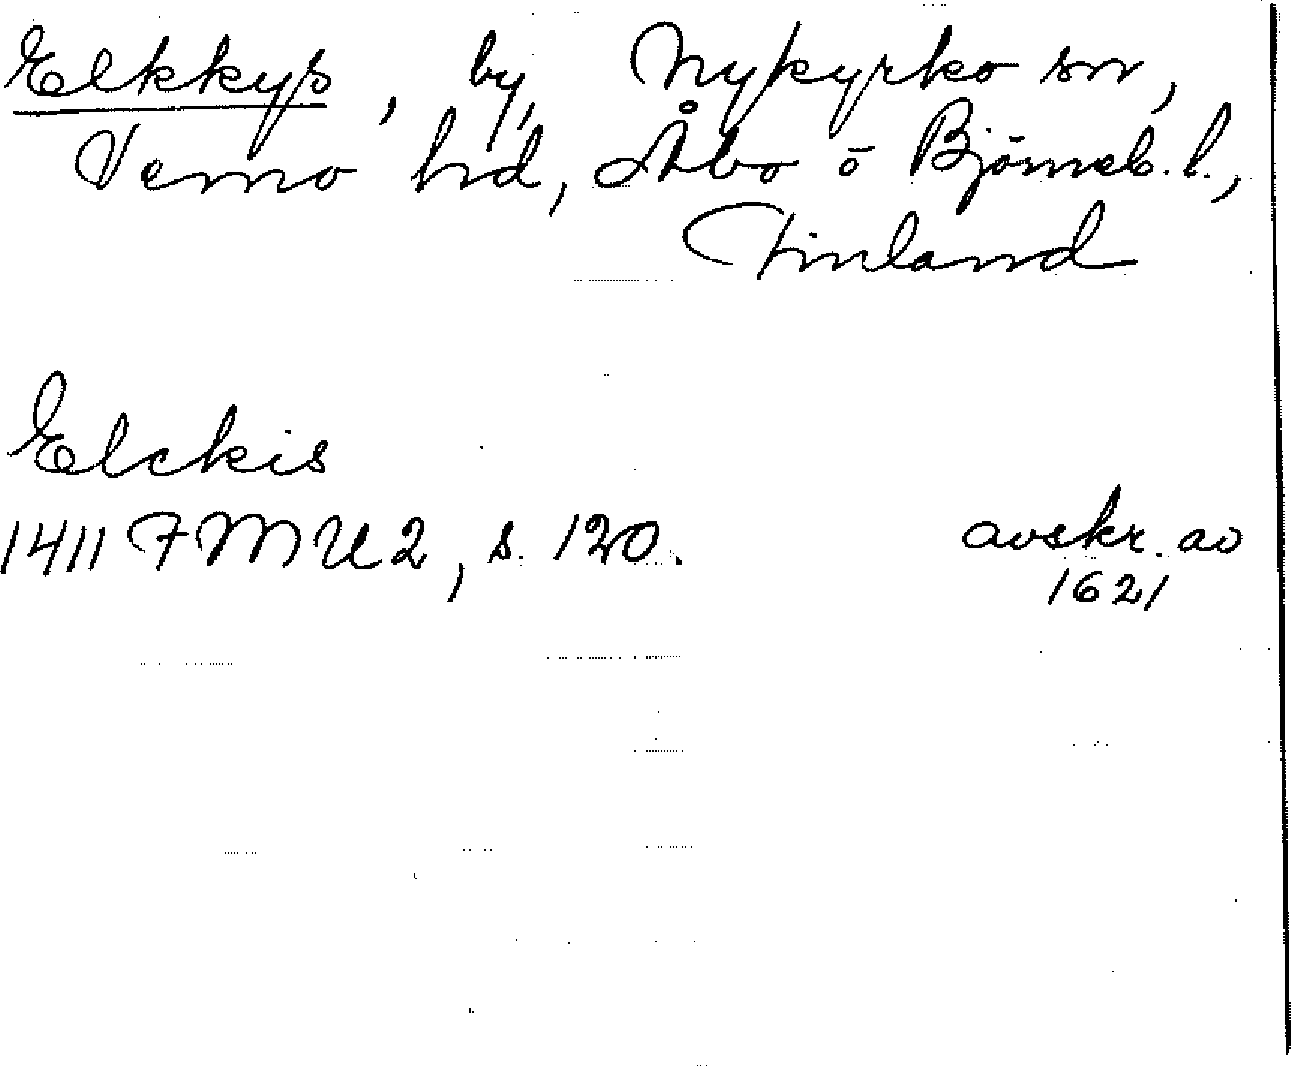 Elkkys, by, Nykyrko sn,
Vemo hd, Åbo o Björneb. l.,
Finland
Elckis
1411 FMU 2, s. 120. avskr. av
1621